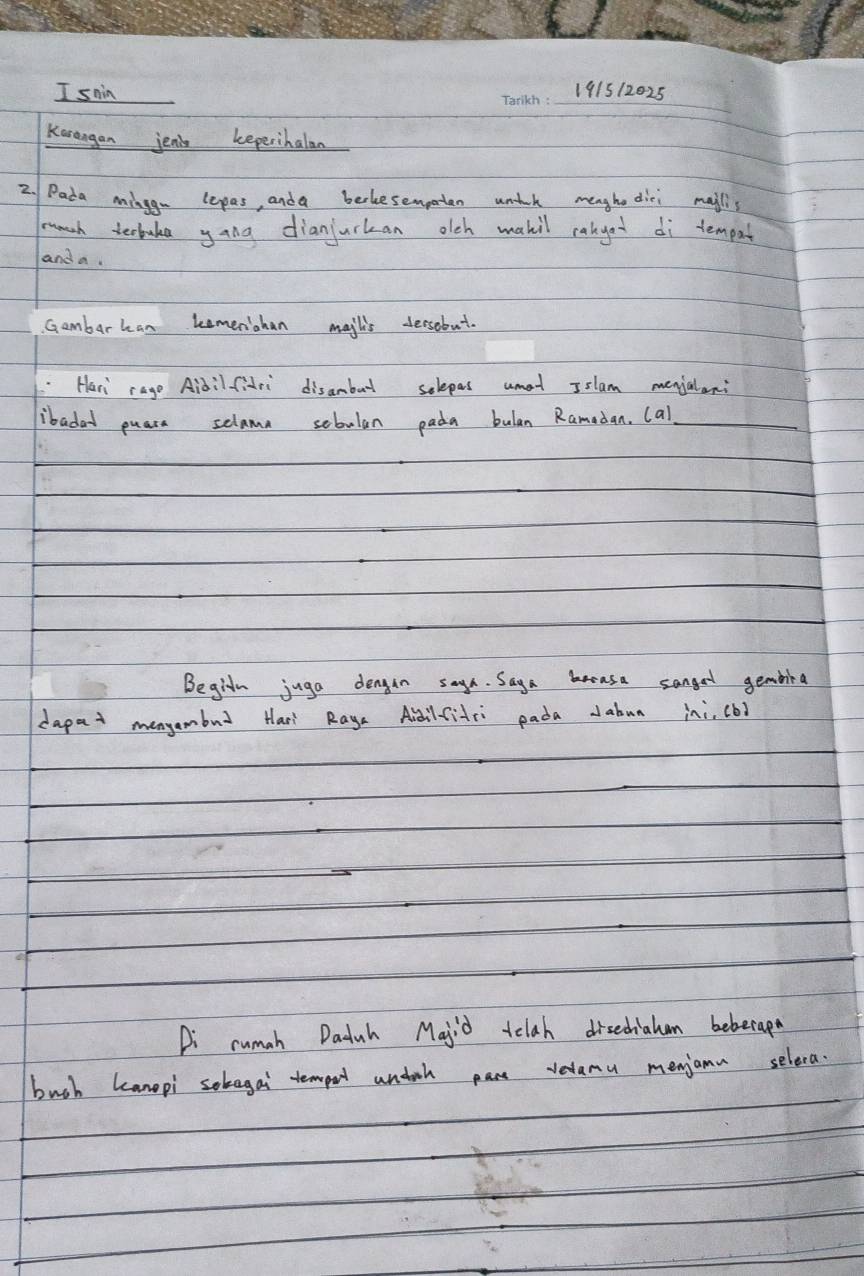 Isnin
Tarikh : 19/5/2025
Karangan jenis keperihalan
2. Pada minggu lepas, anda berkesempatan untuk menghadiri majlis
rumah terbuka yang dianjurkan oleh wakil rakyat di tempat
anda.
Gambarkan kemeriahan majlis tersebut.
Hari raya Aidilfitri disambut selepas umat Islam menjalani
ibadat puasa selama sebulan pada bulan Ramadan. (a)
Begitu juga dengan saya. Saya berasa sangat gembira
dapat menyambut Hari Raya Aidilfitri pada tahun ini. (b)
Di rumah Datuk Majid telah disediakan beberapa
buah kanopi sebagai tempat untuk para tetamu menjamu selera.